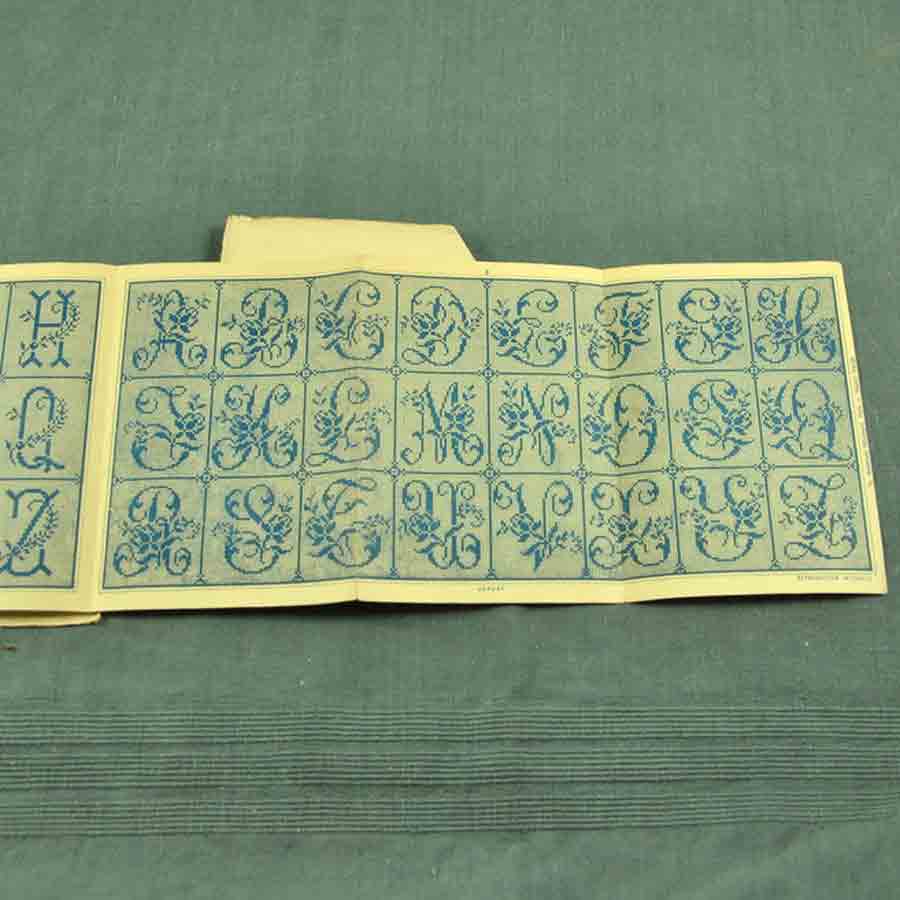 H
Q
Z
A B C D E F G H
I K L M N O P Q
R S T U V X Y Z
REPRODUCTION INTERDITE